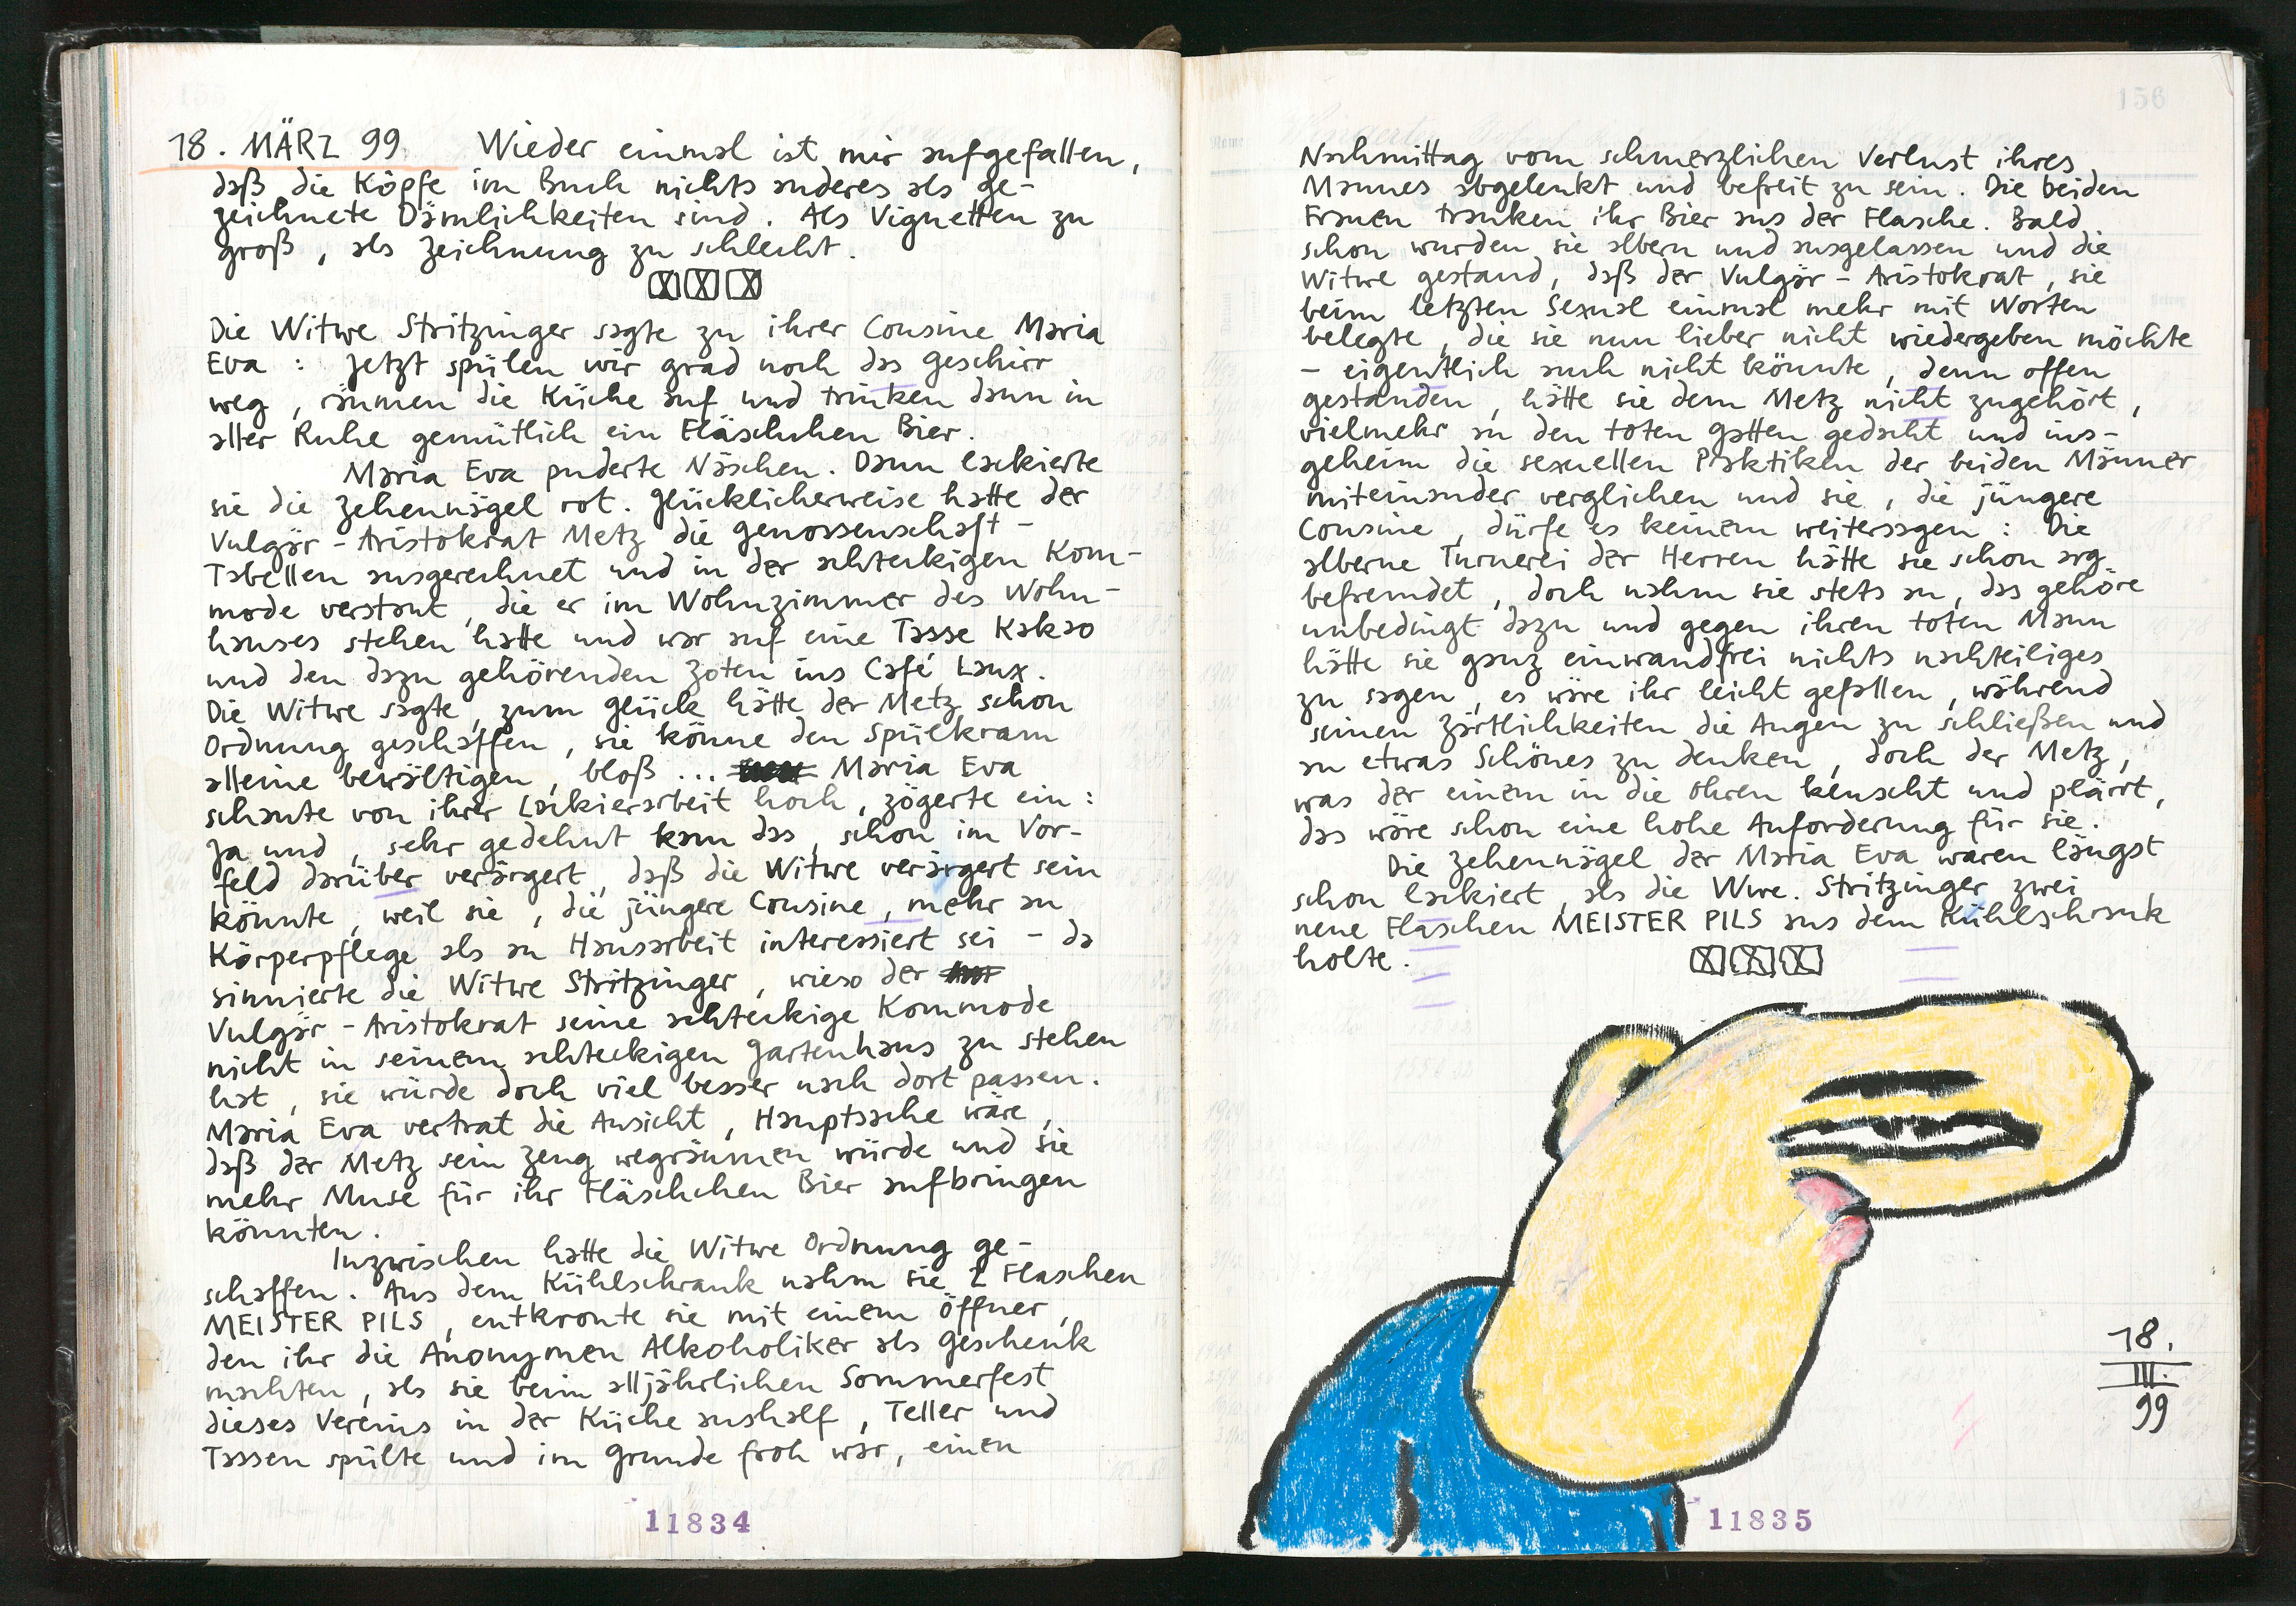 155
18. MÄRZ 99 Wieder einmal ist mir aufgefallen,
daß die Köpfe im Buch nichts anderes als ge-
zeichnete Dämlichkeiten sind. Als Vignetten zu
groß, als Zeichnung zu schlecht.
Die Witwe Stritzinger sagte zu ihrer Cousine Maria
Eva: Jetzt spülen wir grad noch das Geschirr
weg, räumen die Küche auf und trinken dann in
aller Ruhe gemütlich ein Fläschchen Bier.
Maria Eva puderte Näschen. Dann lackierte
sie die Zehennägel rot. Glücklicherweise hatte der
Vulgär-Aristokrat Metz die Genossenschaft-
Tabellen ausgerechnet und in der achteckigen Kom-
mode verstaut, die er im Wohnzimmer des Wohn-
hauses stehen hatte und war auf eine Tasse Kakao
und den dazu gehörenden Zoten ins Café Laux.
Die Witwe sagte, zum Glück hätte der Metz schon
Ordnung geschaffen, sie könne den Spülkram
alleine bewältigen, bloß ... Maria Eva
schaute von ihrer Lackierarbeit hoch, zögerte ein:
Ja und, sehr gedehnt kam das, schon im Vor-
feld darüber verärgert, daß die Witwe verärgert sein
könnte, weil sie, die jüngere Cousine, mehr an
Körperpflege als an Hausarbeit interessiert sei - da
sinnierte die Witwe Stritzinger, wieso der
Vulgär-Aristokrat seine achteckige Kommode
nicht in seinem achteckigen Gartenhaus zu stehen
hat, sie würde doch viel besser nach dort passen.
Maria Eva vertrat die Ansicht, Hauptsache wäre,
daß der Metz sein Zeug wegräumen würde und sie
mehr Muse für ihr Fläschchen Bier aufbringen
könnten.
Inzwischen hatte die Witwe Ordnung ge-
schaffen. Aus dem Kühlschrank nahm sie 2 Flaschen
MEISTER PILS, entkronte sie mit einem Öffner,
den ihr die Anonymen Alkoholiker als Geschenk
machten, als sie beim alljährlichen Sommerfest
dieses Vereins in der Küche aushalf, Teller und
Tassen spülte und im Grunde froh war, einen
11834
156
Nachmittag vom schmerzlichen Verlust ihres
Mannes abgelenkt und befreit zu sein. Die beiden
Frauen tranken ihr Bier aus der Flasche. Bald
schon wurden sie albern und ausgelassen und die
Witwe gestand, daß der Vulgär-Aristokrat, sie
beim letzten Sexual einmal mehr mit Worten
belegte, die sie nun lieber nicht wiedergeben möchte
- eigentlich auch nicht könnte, denn offen
gestanden, hätte sie dem Metz nicht zugehört,
vielmehr an den toten Gatten gedacht und ins-
geheim die sexuellen Praktiken der beiden Männer
miteinander verglichen und sie, die jüngere
Cousine, dürfe es keinem weitersagen: Die
alberne Turnerei der Herren hätte sie schon arg
befremdet, doch nahm sie stets an, das gehöre
unbedingt dazu und gegen ihren toten Mann
hätte sie ganz einwandfrei nichts nachteiliges
zu sagen, es wäre ihr leicht gefallen, während
seinen Zärtlichkeiten die Augen zu schließen und
an etwas Schönes zu denken, doch der Metz,
was der einem in die Ohren keuscht und plärrt,
das wäre schon eine hohe Anforderung für sie.
Die Zehennägel der Maria Eva waren längst
schon lackiert, als die Wwe. Stritzinger zwei
neue Flaschen MEISTER PILS aus dem Kühlschrank
holte.
18.
III.
99
11835